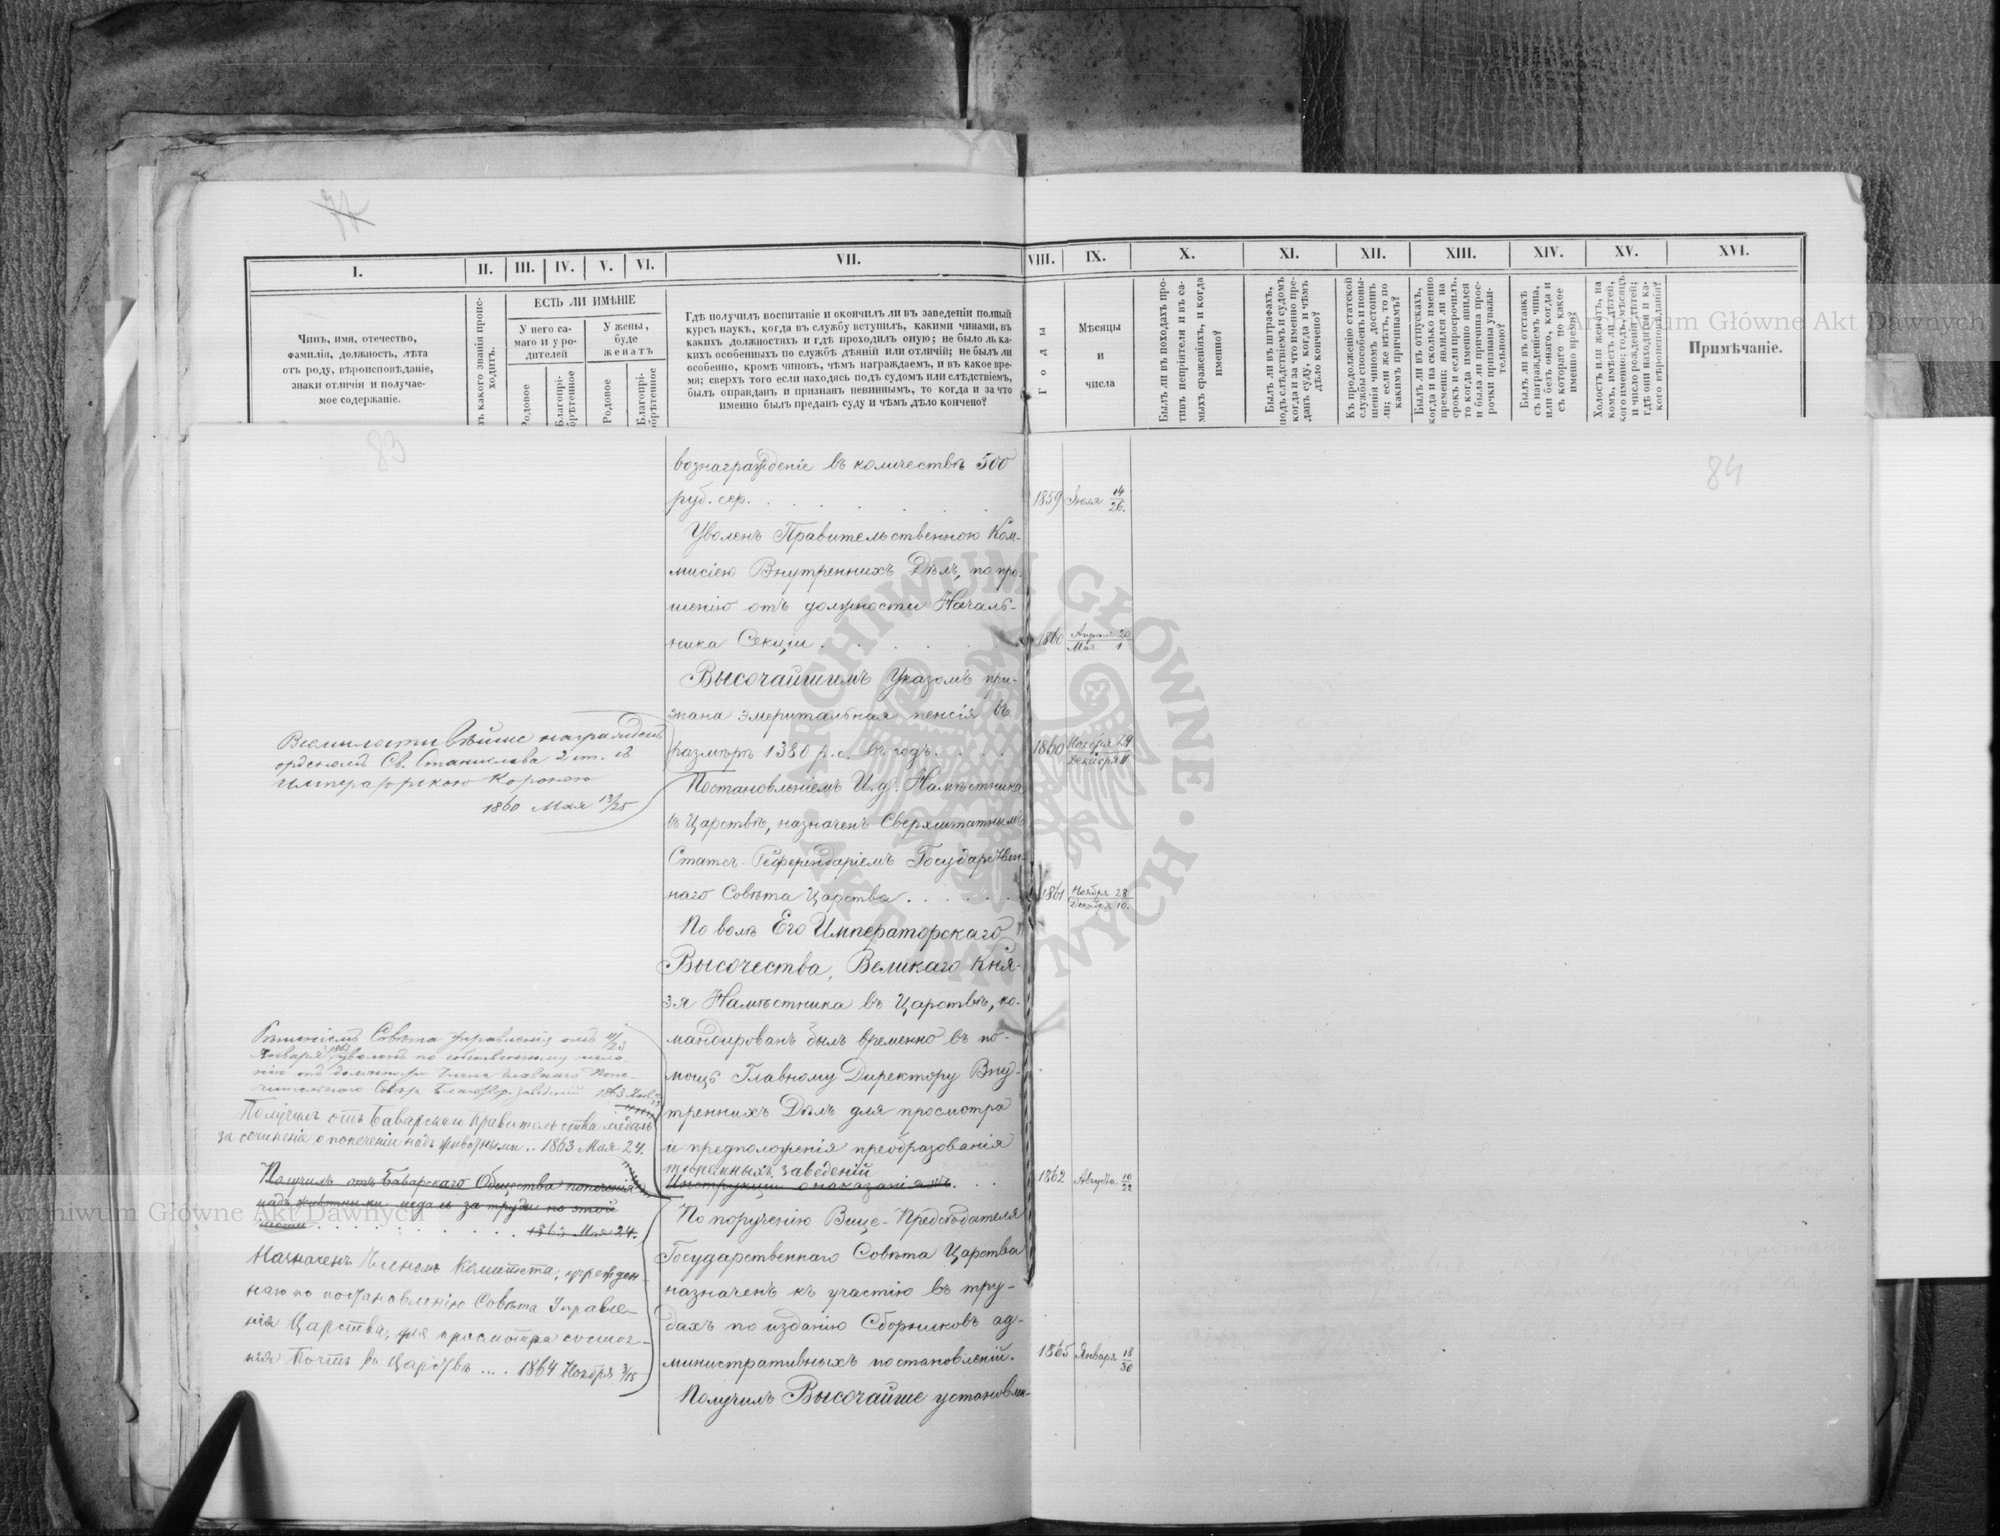 77
I.
II.
III.
IV.
V.
VI.
VII.
VIII.
IX.
X.
XI.
XII.
XIII.
XIV.
XV.
XVI.
Чинъ, имя, отечество,
фамилія, должность, лѣта
отъ роду, вѣроисповѣданіе,
знаки отличія и получае-
мое содержаніе.
зъ какого званія проис-
ходитъ.
ЕСТЬ ЛИ ИМѢНІЕ
У него са-
маго и у ро-
дителей
У жены,
буде
женатъ
Родовое
Благопрі-
обрѣтенное
Родовое
Благопрі-
обрѣтенное
Гдѣ получилъ воспитаніе и окончилъ ли въ заведеніи полный
курсъ наукъ, когда въ службу вступилъ, какими чинами, въ
какихъ должностяхъ и гдѣ проходилъ оную; не было ль ка-
кихъ особенныхъ по службѣ дѣяній или отличій; не былъ ли
особенно, кромѣ чиновъ, чѣмъ награждаемъ, и въ какое вре-
мя; сверхъ того если находясь подъ судомъ или слѣдствіемъ,
былъ оправданъ и признанъ невиннымъ, то когда и за что
именно былъ преданъ суду и чѣмъ дѣло кончено?
Годы
Мѣсяцы
и
числа
Былъ ли въ походахъ про-
тивъ непріятеля и въ са-
мыхъ сраженіяхъ, и когда
именно?
Былъ ли въ штрафахъ,
подъ слѣдствіемъ и судомъ
когда и за что именно пре-
данъ суду, когда и чѣмъ
дѣло кончено?
Къ продолженію статской
службы способенъ и повы-
шенія чиномъ достоинъ
ли; если же нѣтъ, то по
какимъ причинамъ?
Былъ ли въ отпускахъ,
когда и на сколько именно
времени; являлся ли на
срокъ и если просрочилъ,
то когда именно явился
и была ли причина прос-
рочки признана уважи-
тельною?
Былъ ли въ отставкѣ
съ награжденіемъ чина,
или безъ онаго, когда и
съ котораго по какое
именно время?
Холостъ или женатъ, на
комъ, имѣетъ ли дѣтей,
кого именно; годъ, мѣсяцъ
и число рожденія дѣтей;
гдѣ они находятся и ка-
кого вѣроисповѣданія?
Примѣчаніе.
83
84
вознагражденіе въ количествѣ 500
руб. сер. 1859 Іюля 14/26.
Уволенъ Правительственною Ком-
мисіею Внутреннихъ Дѣлъ, по про-
шенію отъ должности Началь-
ника Секціи 1860 Апрѣля 20/Мая 1
Высочайшимъ Указомъ при-
знана эмеритальная пенсія въ
размѣрѣ 1380 р.с. въ годъ 1860 Ноября 29/Декабря 11
Постановленіемъ И.д. Намѣстника
въ Царствѣ, назначенъ Сверхштатнымъ
Статсъ-Референдаріемъ Государствен-
наго Совѣта Царства 1861 Ноября 28/Декабря 10.
По волѣ Его Императорскаго
Высочества, Великаго Кня-
зя Намѣстника въ Царствѣ, ко-
мандированъ былъ временно въ по-
мощь Главному Директору Вну-
треннихъ Дѣлъ для просмотра
и предположенія преобразованія
тюремныхъ заведеній
Инструкціи о наказаніяхъ. 1862 Августа 10/22
По порученію Вице-Предсѣдателя
Государственнаго Совѣта Царства
назначенъ къ участію въ тру-
дахъ по изданію Сборниковъ ад-
министративныхъ постановленій. 1865 Января 18/30
Получилъ Высочайше установлен-
Всемилостивѣйше награжденъ
орденомъ Св. Станислава 2 ст. съ
Императорскою Короною
1860 Мая 13/25
Рѣшеніемъ Совѣта Управленія отъ 11/23
Января 1863 уволенъ по собственному жела-
нію отъ должности Члена Главнаго Попе-
чительнаго Совѣта Благотвор. заведеній 1863
Получилъ отъ Баварскаго Правительства медаль
за сочиненіе о попеченіи надъ животными .. 1863 Мая 24.
Получилъ отъ Баварскаго Общества попеченія
надъ животными медаль за труды по этой
части 1863 Мая 24.
Назначенъ Членомъ Комитета, учрежден-
наго по постановленію Совѣта Управле-
нія Царства, для просмотра состоя-
нія Почтъ въ Царствѣ .... 1864 Ноября 3/15
Archiwum Główne Akt Dawnych
Archiwum Główne Akt Dawnych
Archiwum Główne Akt Dawnych
ARCHIWUM GŁÓWNE AKT DAWNYCH